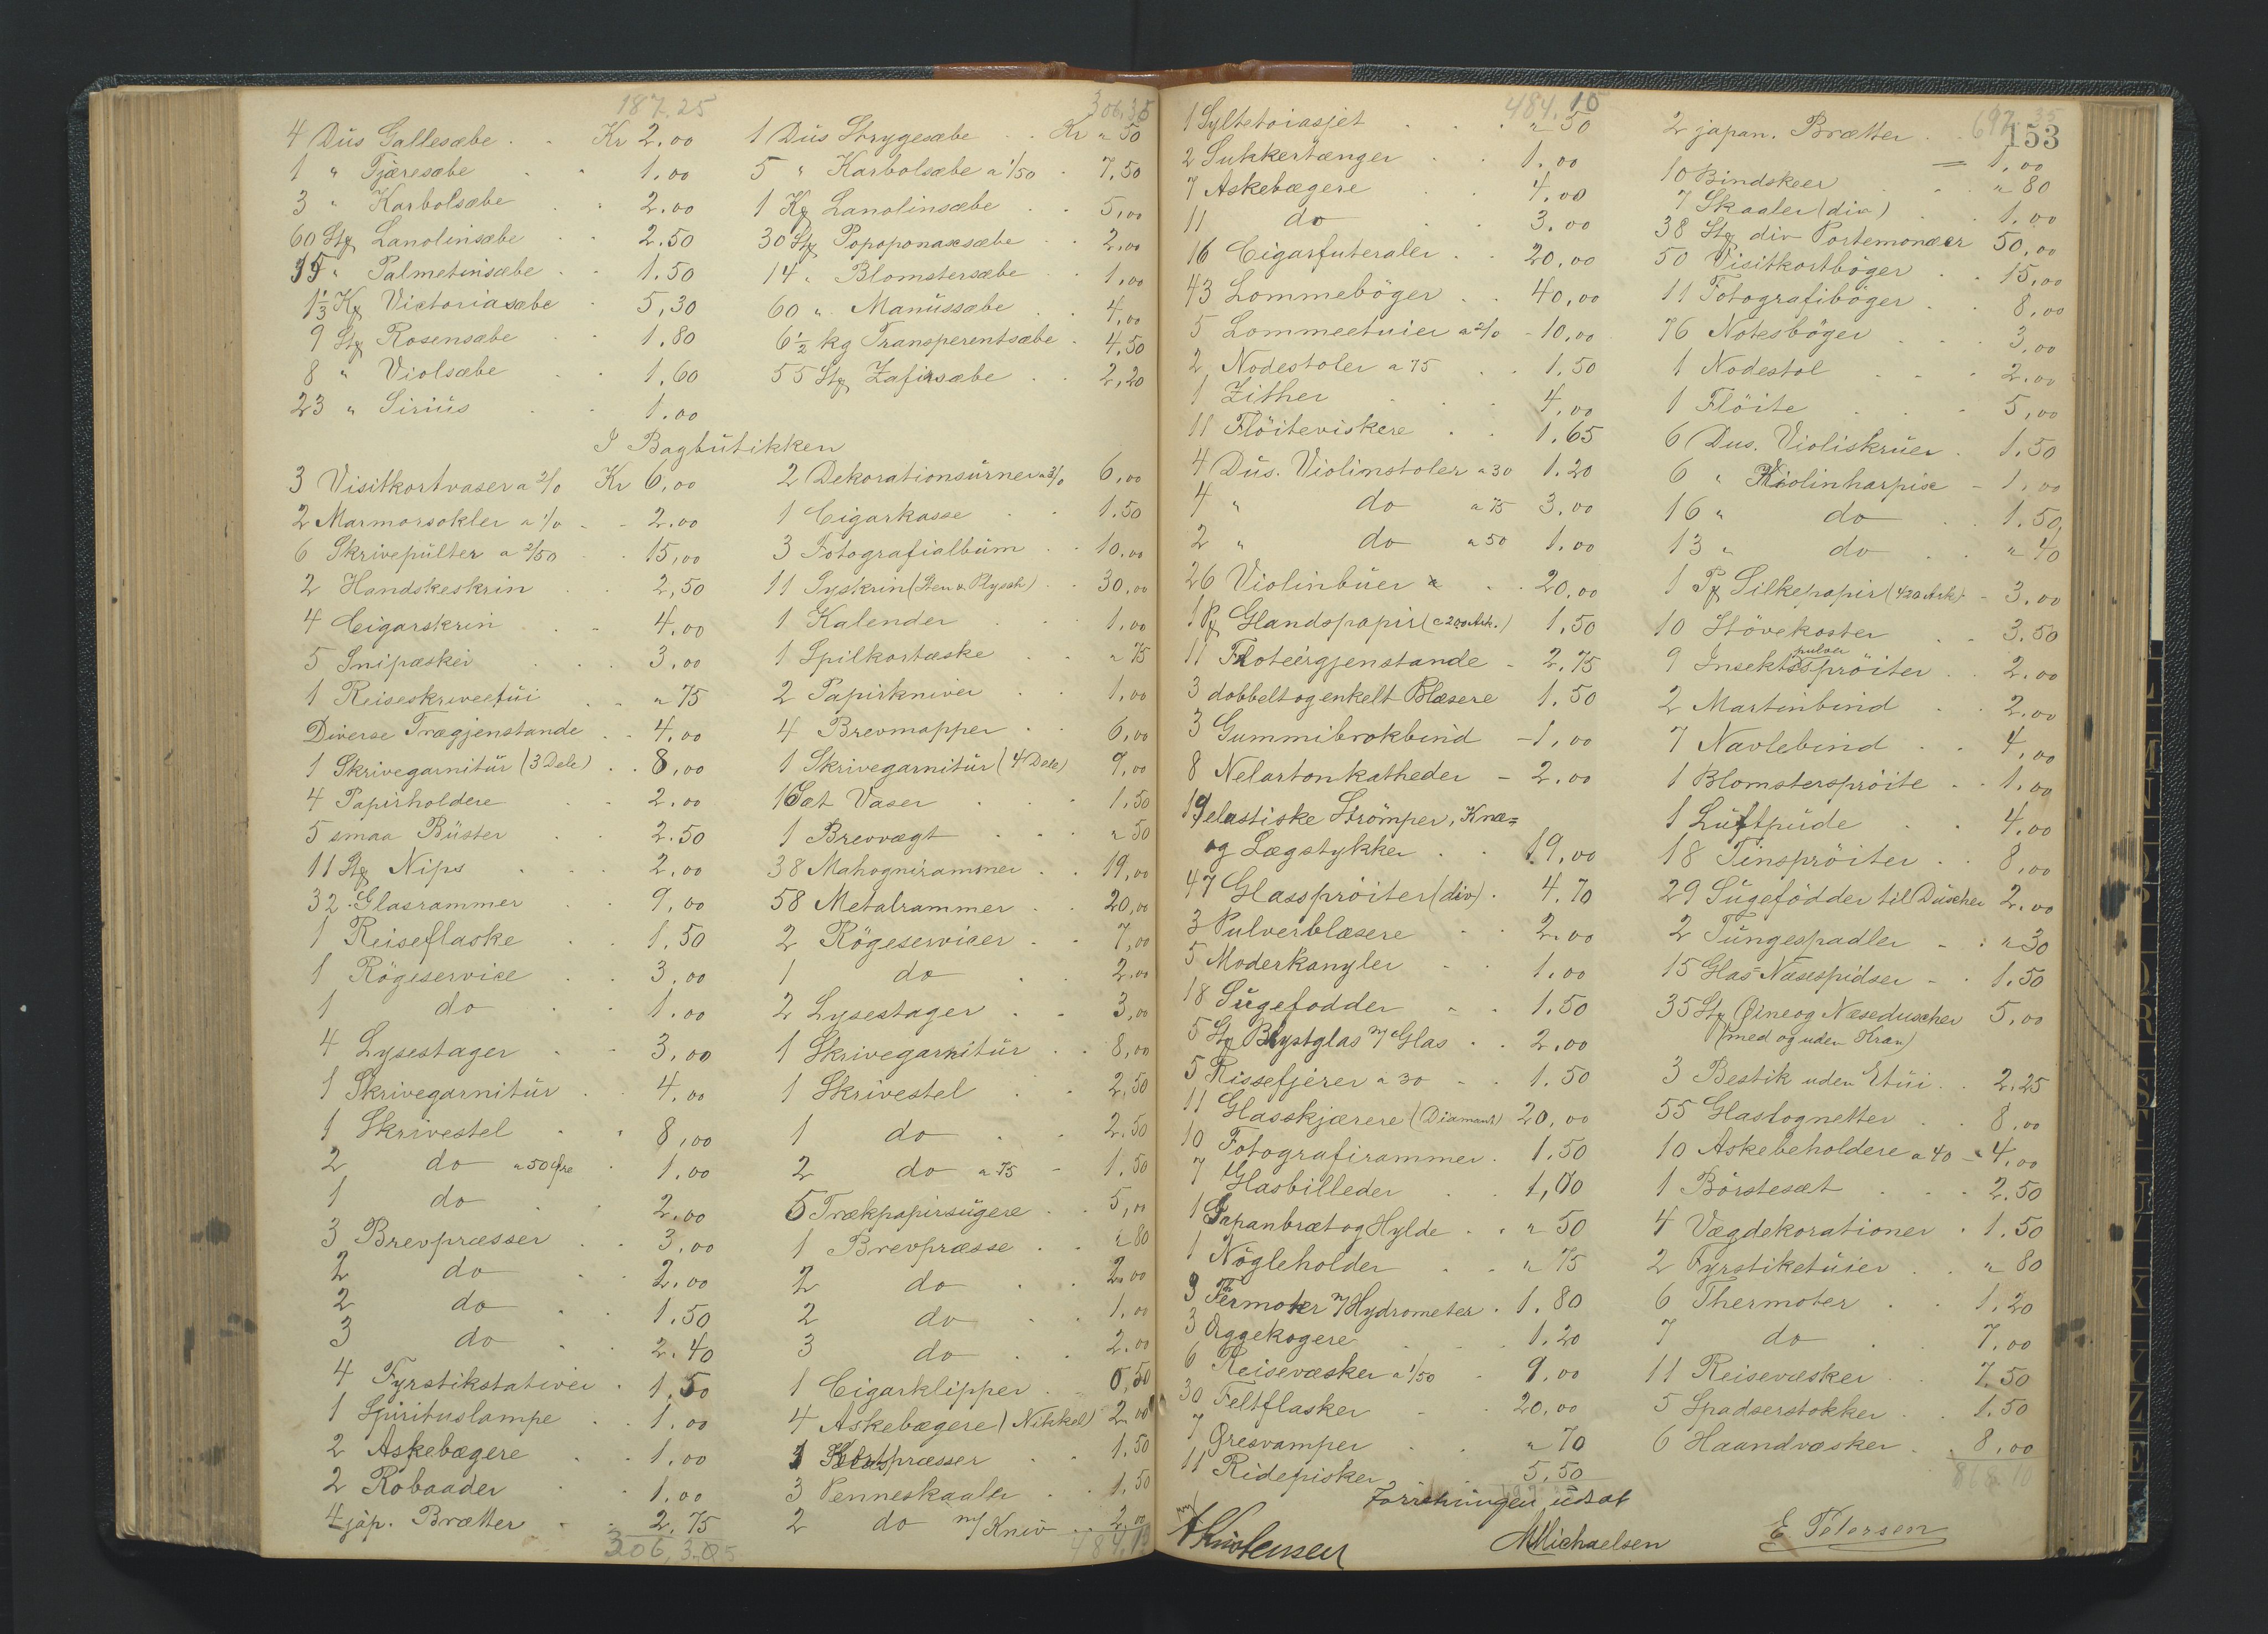 187.25
4 Dūs Gallesæbe . . Kr 2.00
1 " Tjæresæbe . . 1.00
3 " Karbolsæbe . . 2.00
60 Stk Lanolinsæbe . . 2.50
15 " Palmetinsæbe . . 1.50
1⅓ Kg Victoriasæbe . 5,30
9 Stk Rosensæbe . . 1.80
8 " Violsæbe . . 1,60
23 " Siriūs . . 1.00
306.35
1 Dūs Strygesæbe . . Kr " 50
5 " Karbolsæbe a 1/50 . 7,50
1 Kg Lanolinsæbe . . 5,00
30 Stk Popoponaxsæbe . 2,00
14 " Blomstersæbe . . 1,00
60 " Manūssæbe . . 4,00
6½ kg Transperentsæbe . 4,50
55 Stk Zafirsæbe . . 2,20
I Bagbūtikken
3 Visitkortvaser a 2/0 Kr 6,00
2 Marmorsokler a 1/0 - - 2.00
6 Skrivepūlter a 2/50 . . 15,00
2 Handskeskrin . . 2,50
4 Cigarskrin . . 4.00
5 Snipæsker . . . 3,00
1 Reiseskriveetūi . . " 75
Diverse Trægjenstande . . 4.00
1 Skrivegarnitūr (3 Dele) . . 8,00
4 Papirholdere . . 2.00
5 smaa Būster . . 2.50
11 Stk Nips . . . 2,00
32 Glasrammer . . 9,00
1 Reiseflaske . . 1,50
1 Rögeservice . . 3,00
1 do . . 1.00
4 Lysestager . . 3,00
1 Skrivegarnitūr . . 4.00
1 Skrivestel . . 8,00
2 do a 50 Øre . 1.00
1 do . . 2.00
3 Brevpræsser . . 3,00
2 do . . 2,00
2 do . . 1.50
3 do . . 2.40
4 Fyrstikstativer . 1,50
1 Spirituslampe . . 1.00
2 Askebægere . . 1,00
2 Robaader . . 1,00
4 jap. Brætter . . 2.75
306,35
2 Dekorationsūrner a 3/0 6,00
1 Cigarkasse . . 1.50
3 Fotografialbūm . . 10,00
11 Syskrin (Sten & Plysch) . . 30,00
1 Kalender . . 1,00
1 Spilkortæske . . " 75
2 Papirkniver . . 1,00
4 Brevmapper . . 6,00
1 Skrivegarnitūr (4 Dele) 9,00
1 Sæt Vaser . . . 1.50
1 Brevvægt . . . " 50
38 Mahognirammer . . 19,00
58 Metalrammer . . 20,00
2 Rögeservicer . . 7,00
1 do . . 2,00
2 Lysestager . . 3,00
1 Skrivegarnitūr . . 8,00
1 Skrivestel . . 2,50
1 do . . 2,50
2 do a 75 - 1.50
5 Trækpapirsūgere . . 5,00
1 Brevpræsse . . " 80
2 do . . 2,00
2 do . . 1,00
3 do . . 2.00
1 Cigarklipper . 0,50
4 Askebægere (Nikkel) 2,00
præsser . . 1.50
3 Penneskaaler . . 1,50
2 do m/ Kniv . . 2,00
484,10
484.10
1 Syltetoiasjet . . . " 50
2 Sukkertænger . . 1.00
7 Askebægere . . 4.00
11 do . . 3.00
16 Cigarfuteraler . . 20,00
43 Lommebøger . . 40,00
5 Lommeetuier a 2/0 - 10,00
2 Nodestoler a 75 . . 1,50
1 Zither . . . 4,00
11 Flöiteviskere . . 1,65
4 Dūs. Violinstoler a 30 1.20
4 " do a 75 3,00
2 " do a 50 1.00
26 Violinbūer . . 20,00
1 Pk Glandspapir (c 200 Ark.) 1,50
11 Froteirgjenstande - 2,75
3 dobbelt og enkelt Blæsere 1.50
3 Gummibrokbind - 1,00
8 Nelartonkatheder - 2.00
19 elastiske Strömper, Knæ=
og Lægstykker . . 19,00
47 Glassprøiter (div) . 4.70
3 Pulverblæsere . . 2.00
5 Moderkangler . . 1.00
18 Sūgefodder . . 1.50
5 Stk Blystglas m/ Glas . . 2,00
5 Rissefjerer a 30 . . 1.50
11 Glasskjærere (Diamant) 20,00
10 Fotografirammer . 1.50
7 Glasbilleder . . 1,00
1 Japanbræt og Hylde . . " 50
1 Nögleholder . . " 75
9 Termoter m/ Hydrometer . 1.80
3 Æggekogere . . 1.20
6 Reisevæsker a 1/50 . 9,00
30 Feltflasker . . 20,00
7 Øresvamper . . " 70
11 Ridepisker . 5.50
697.35
153
2 japan. Brætter . . 1,00
10 Bindskeer . . " 80
7 Skaaler (div) . . 1.00
38 Stk div Portemonæer 50,00
50 Visitkortbøger . . 15,00
11 Fotografibøger . . 8,00
76 Notesbøger . . . 3,00
1 Nodestol . . . 2.00
1 Flöite . . . 5,00
6 Dus. Violiskruer . 1.50
6 " Violinharpix - 1,00
16 " do . . 1.50
13 " do . . " 40
1 Pk Silkepapir (420 Ark) - 3,00
10 Stövekoster . . 3.50
pulver
9 Insektssprøiter . . 2.00
2 Martinbind . . 2,00
7 Navlebind . . 4,00
1 Blomstersprøite . . 1,00
1 Lūftpūde . . 4.00
18 Tinsprøiter . . 8,00
29 Sūgefödder til Dūscher 2.00
2 Tūngespadler . . " 30
15 Glas-Næsespidser - . 1.50
35 Stk Øine og Næseduscher 5,00
(med og uden Kran)
3 Bestik uden Etūi . . 2.25
55 Glaslognetter . . 8,00
10 Askebeholdere a 40 - 4,00
1 Börstesæt . . . 2.50
4 Vægdekorationer . 1.50
2 Fyrstiketūier . . " 80
6 Thermoter . . 1,20
7 do . . 7,00
11 Reisevæsker . . 7.50
5 Spadserstokker . . 1.50
6 Haandvæsker . . 8,00
Forretningen ūdsat
A Kristensen
M Michaelsen
E Petersen